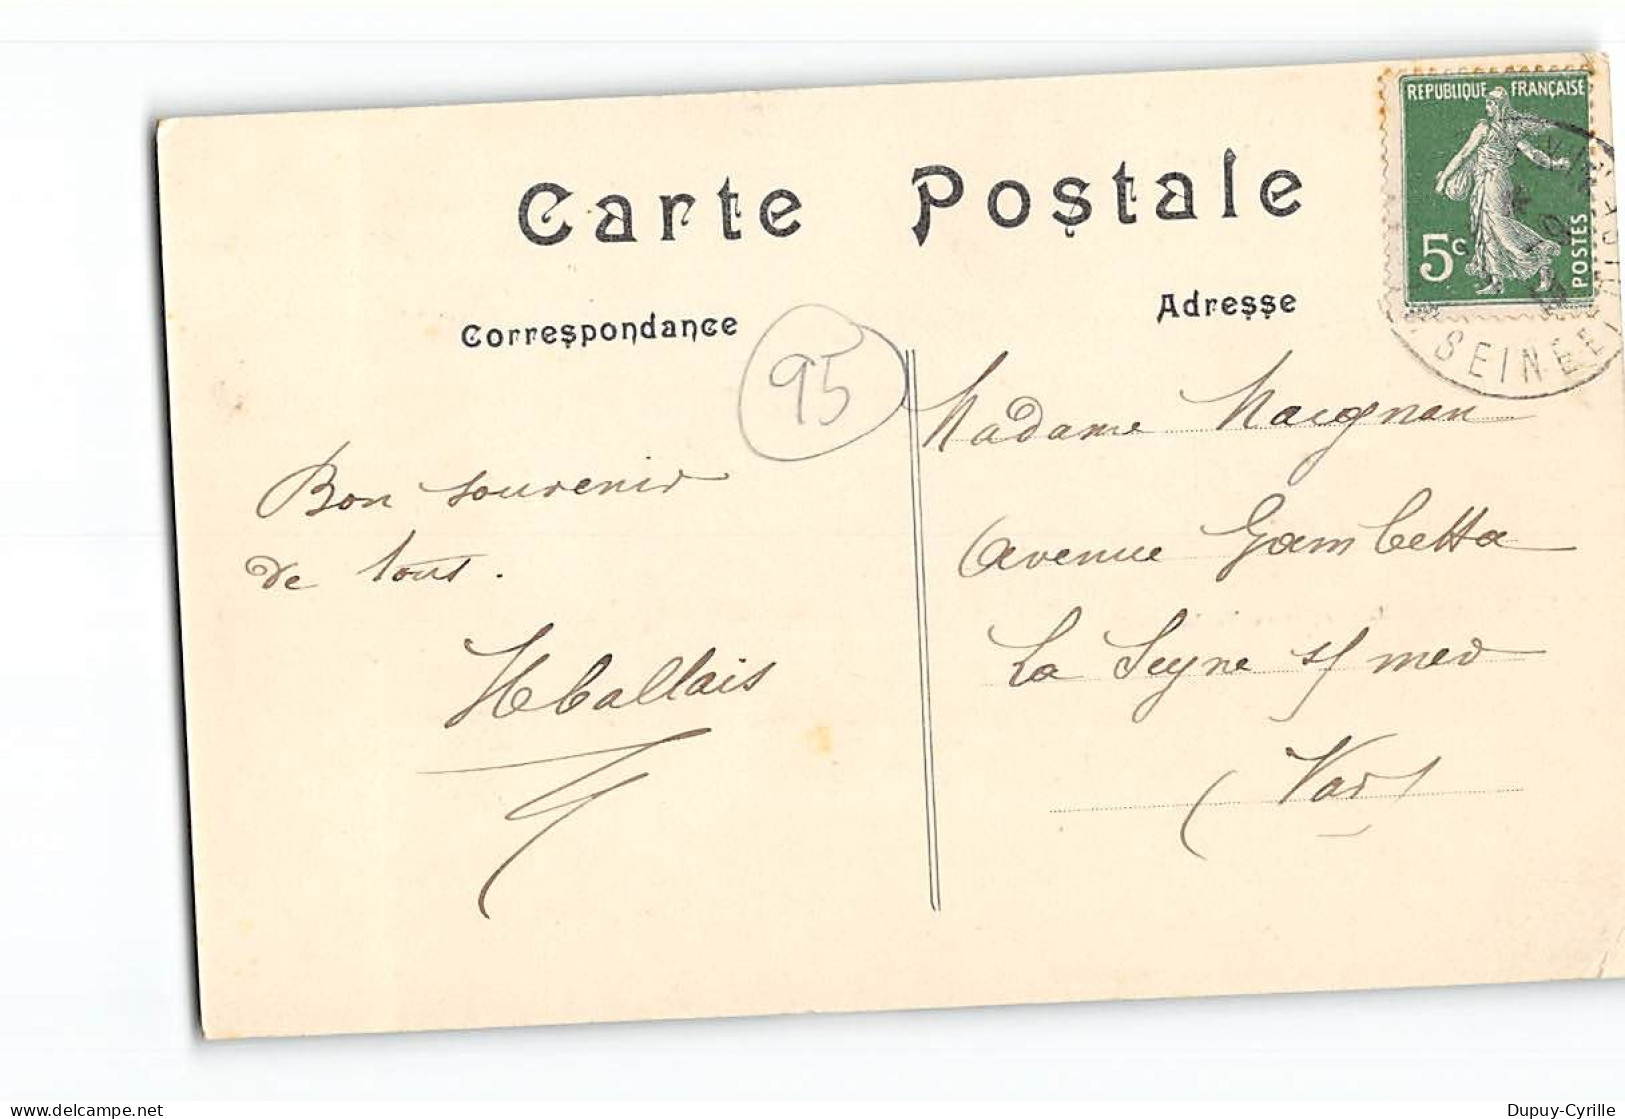 Carte Postale
Correspondance
Adresse
REPUBLIQUE FRANÇAISE
5c
POSTES
SEINE
95
Bon souvenir
de tous.
Madame Maignan
avenue Gambetta
La Seyne s/ mer
(Var)
delcampe.net
Dupuy-Cyrille